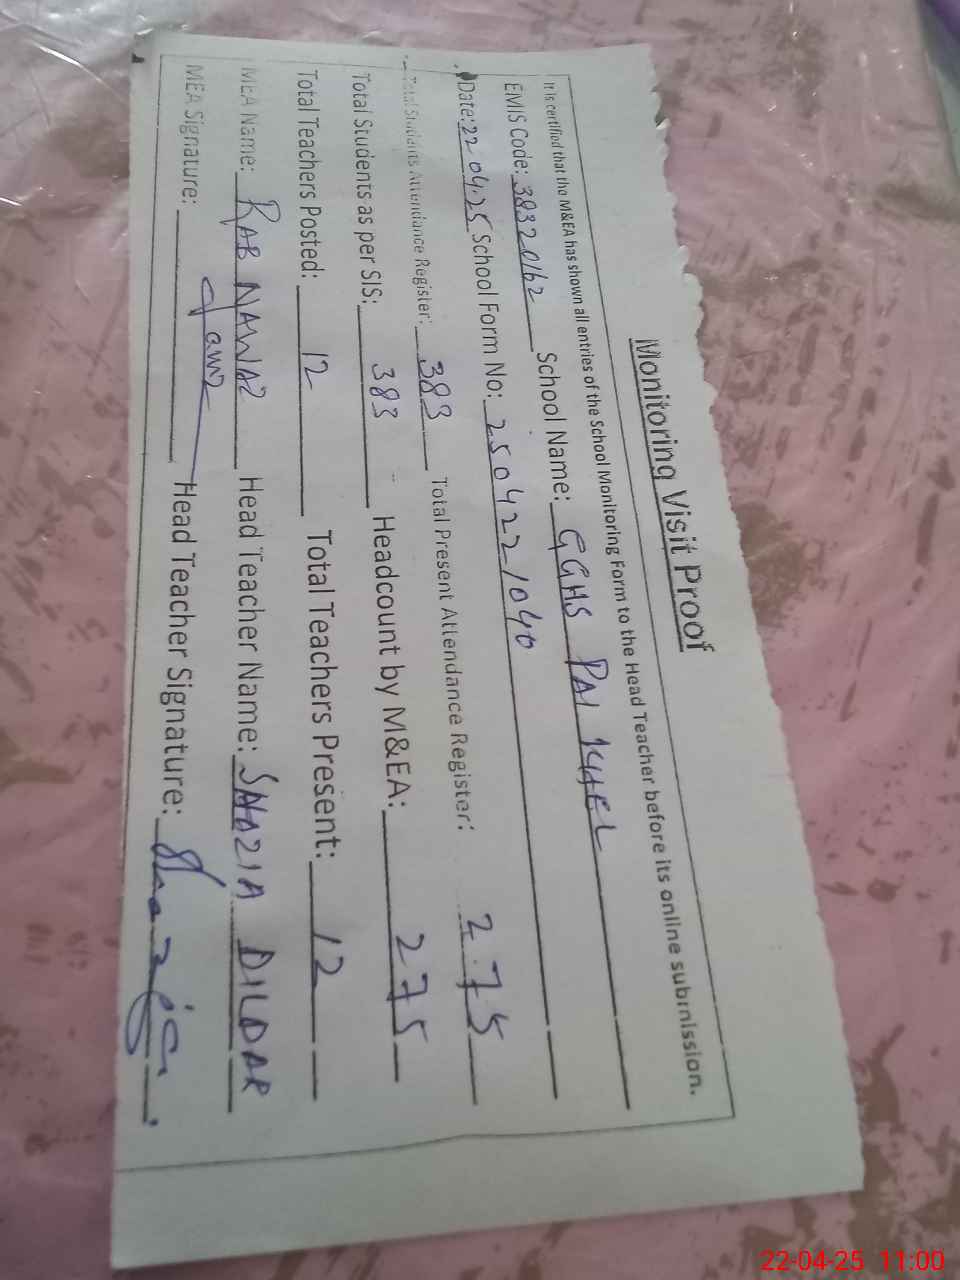 Monitoring Visit Proof
It is certified that the M&EA has shown all entries of the School Monitoring Form to the Head Teacher before its online submission.
EMIS Code: 38320162 School Name: GGHS PAI KHEL
Date: 22 04.25 School Form No: 2504221040
Total Students Attendance Register: 383 Total Present Attendance Register: 275
Total Students as per SIS: 383 Headcount by M&EA: 275
Total Teachers Posted: 12 Total Teachers Present: 12
MEA Name: RAB NAWAZ Head Teacher Name: SHAZIA DILDAR
MEA Signature: Head Teacher Signature: Shazia
22-04-25 11:00